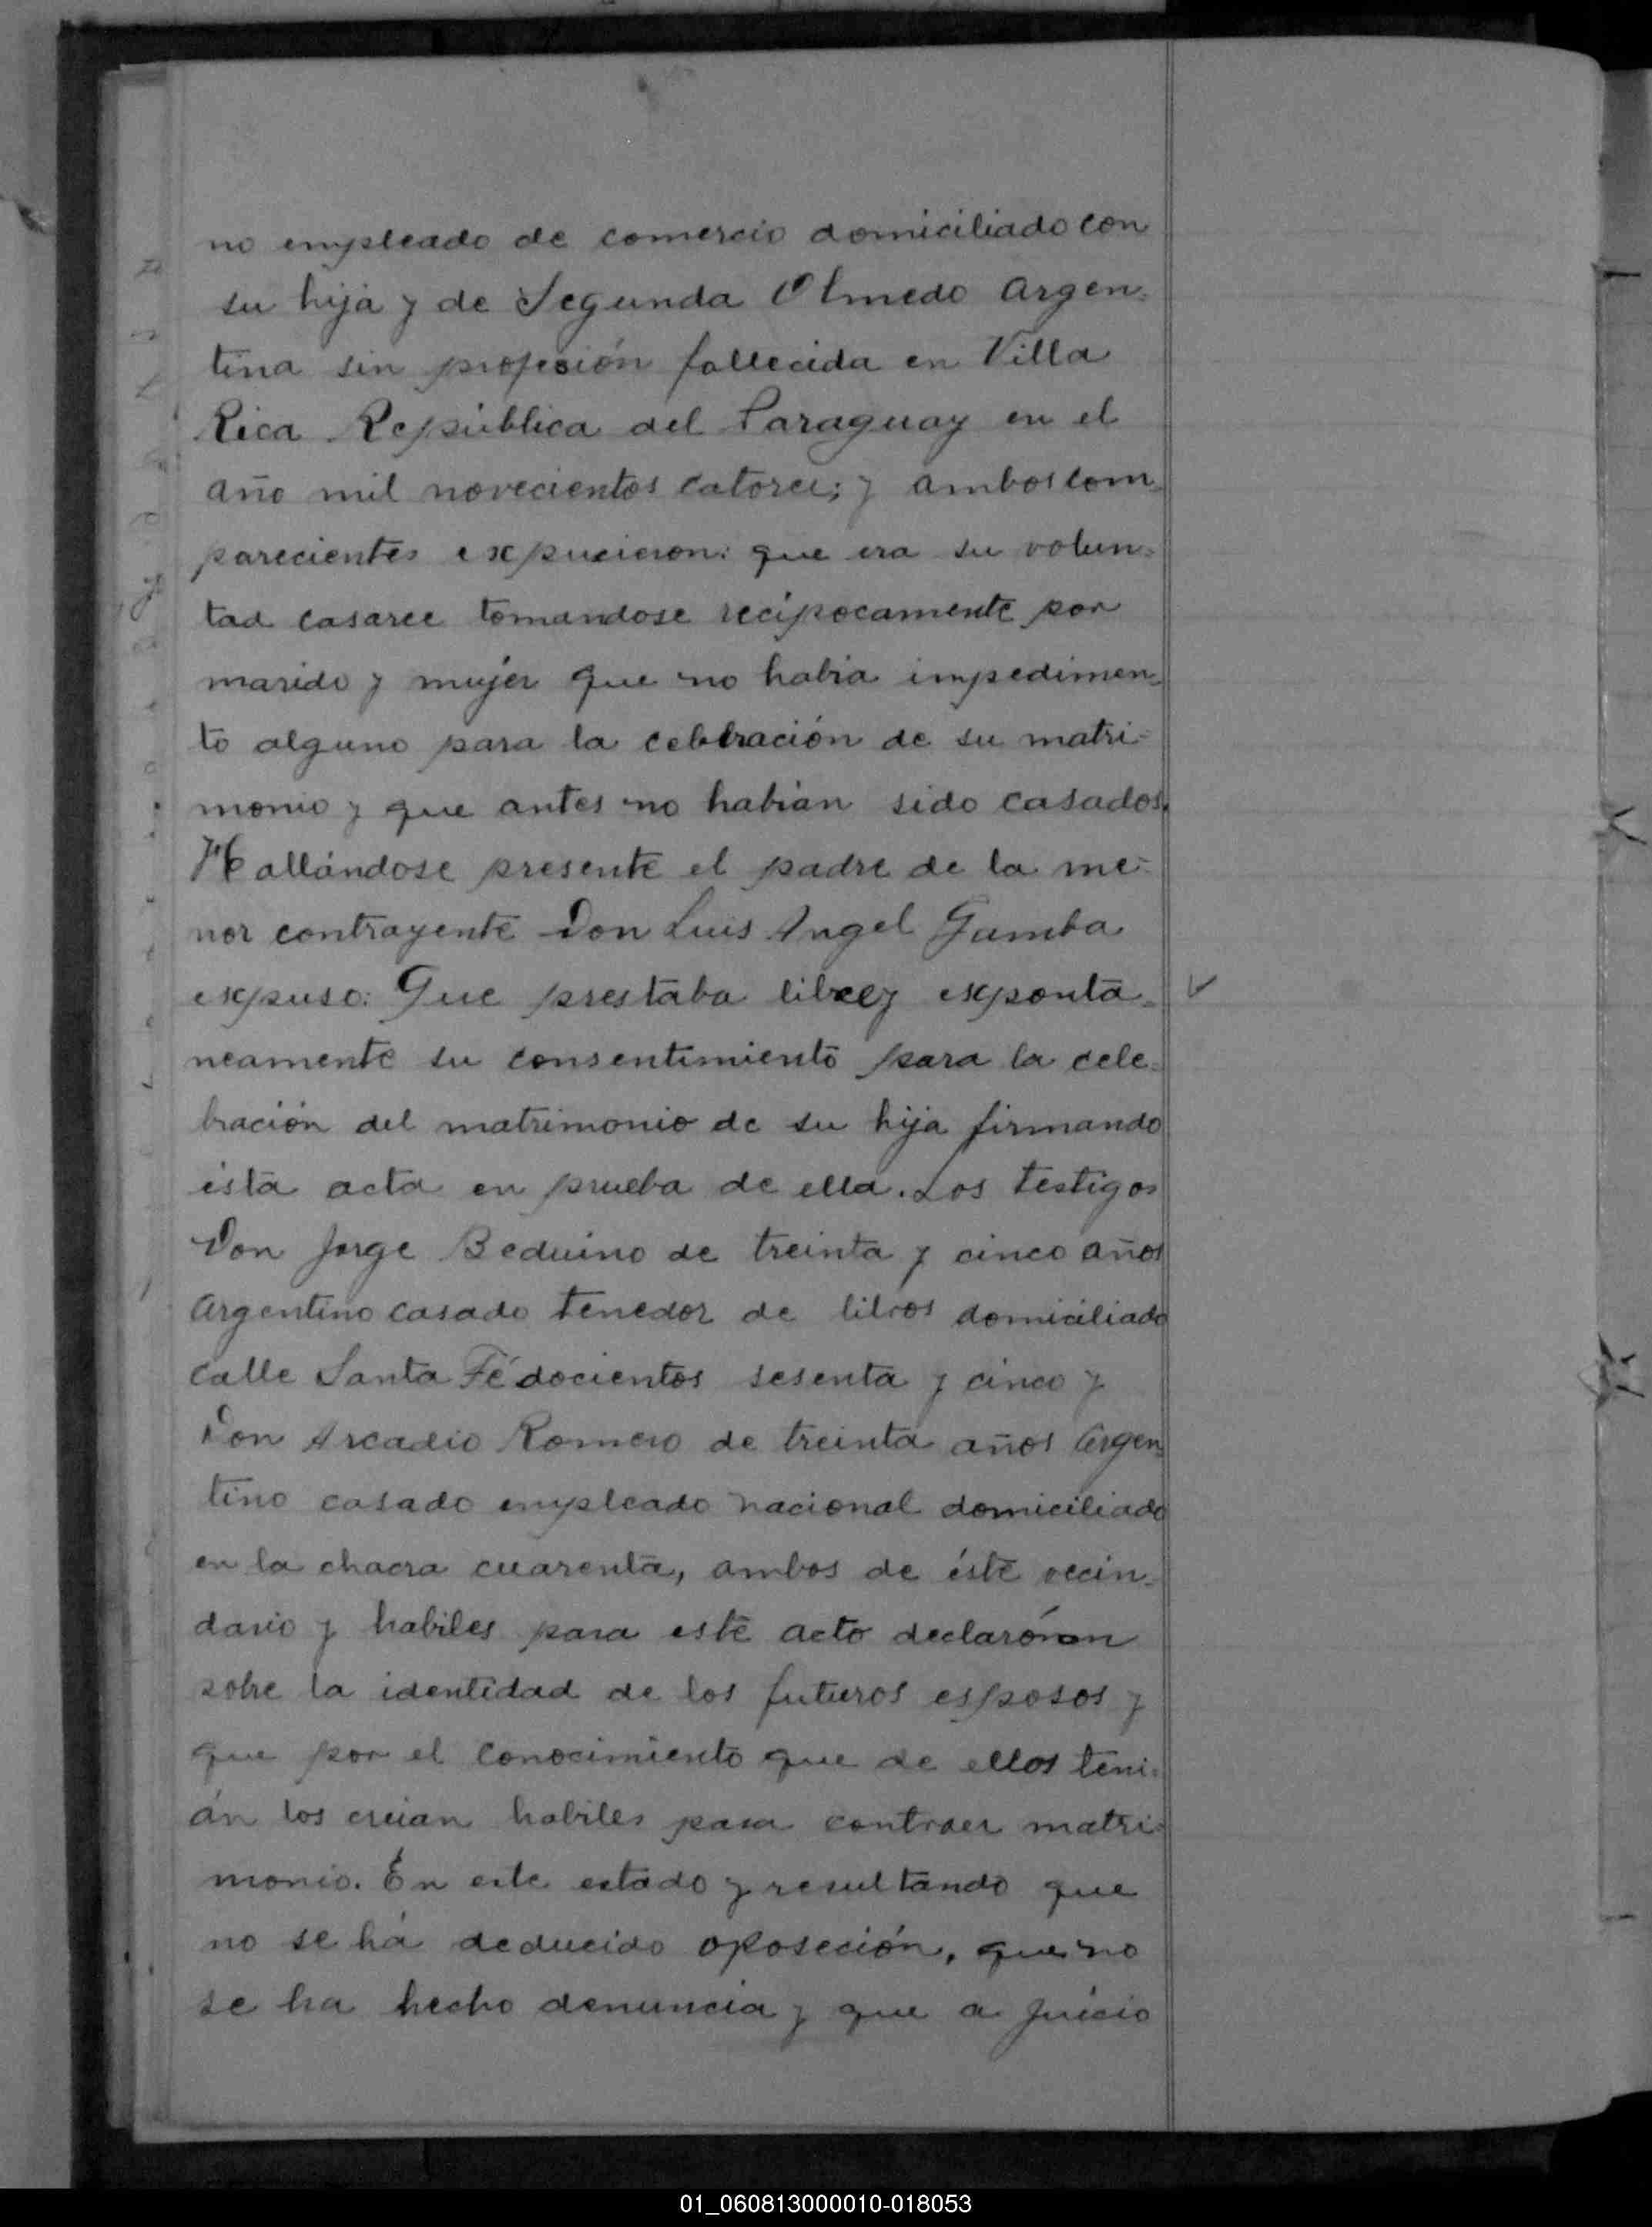 no empleado de comercio domiciliado con
su hija y de Segunda Olmedo Argen=
tina sin profesión fallecida en Villa
Rica República del Paraguay en el
año mil novecientos catorce; y ambos com=
parecientes expucieron: que era su volun=
tad casarce tomandose recipocamente por
marido y mujer que no habia impedimen=
to alguno para la celebración de su matri=
monio y que antes no habian sido casados.
Hallándose presente el padre de la me=
nor contrayente Don Luis Angel Gamba
expuso: Que prestaba libre y exponta=
neamente su consentimiento para la cele=
bración del matrimonio de su hija firmando
ésta acta en prueba de ella. Los testigos
Don Jorge Beduino de treinta y cinco años
Argentino casado tenedor de libros domiciliado
calle Santa Fé docientos sesenta y cinco y
Don Arcadio Romero de treinta años Argen=
tino casado empleado nacional domiciliado
en la chacra cuarenta, ambos de éste vecin=
dario y habiles para este acto declarón
sobre la identidad de los futuros esposos y
que por el conocimiento que de ellos teni=
án los creian habiles para contraer matri=
monio. En este estado y resultando que
no se há deducido oposeción, que no
se ha hecho denuncia y que a juicio
01_060813000010-018053